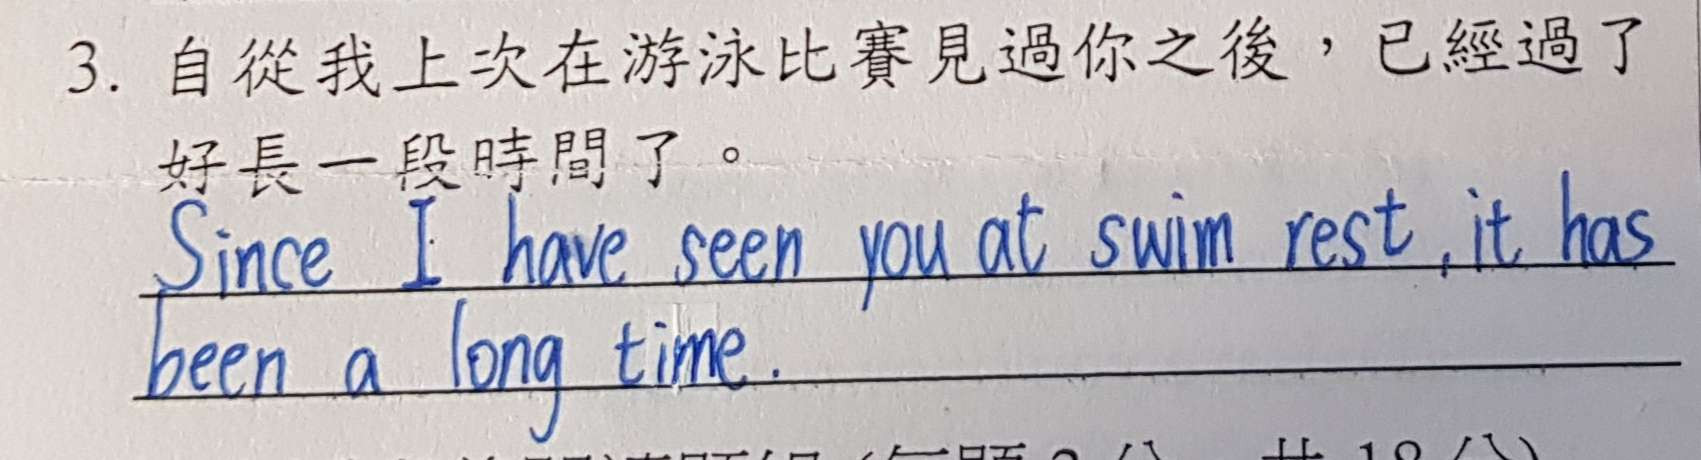 3. 自從我上次在游泳比賽見過你之後，已經過了
好長一段時間了。
Since I have seen you at swim rest, it has
been a long time.